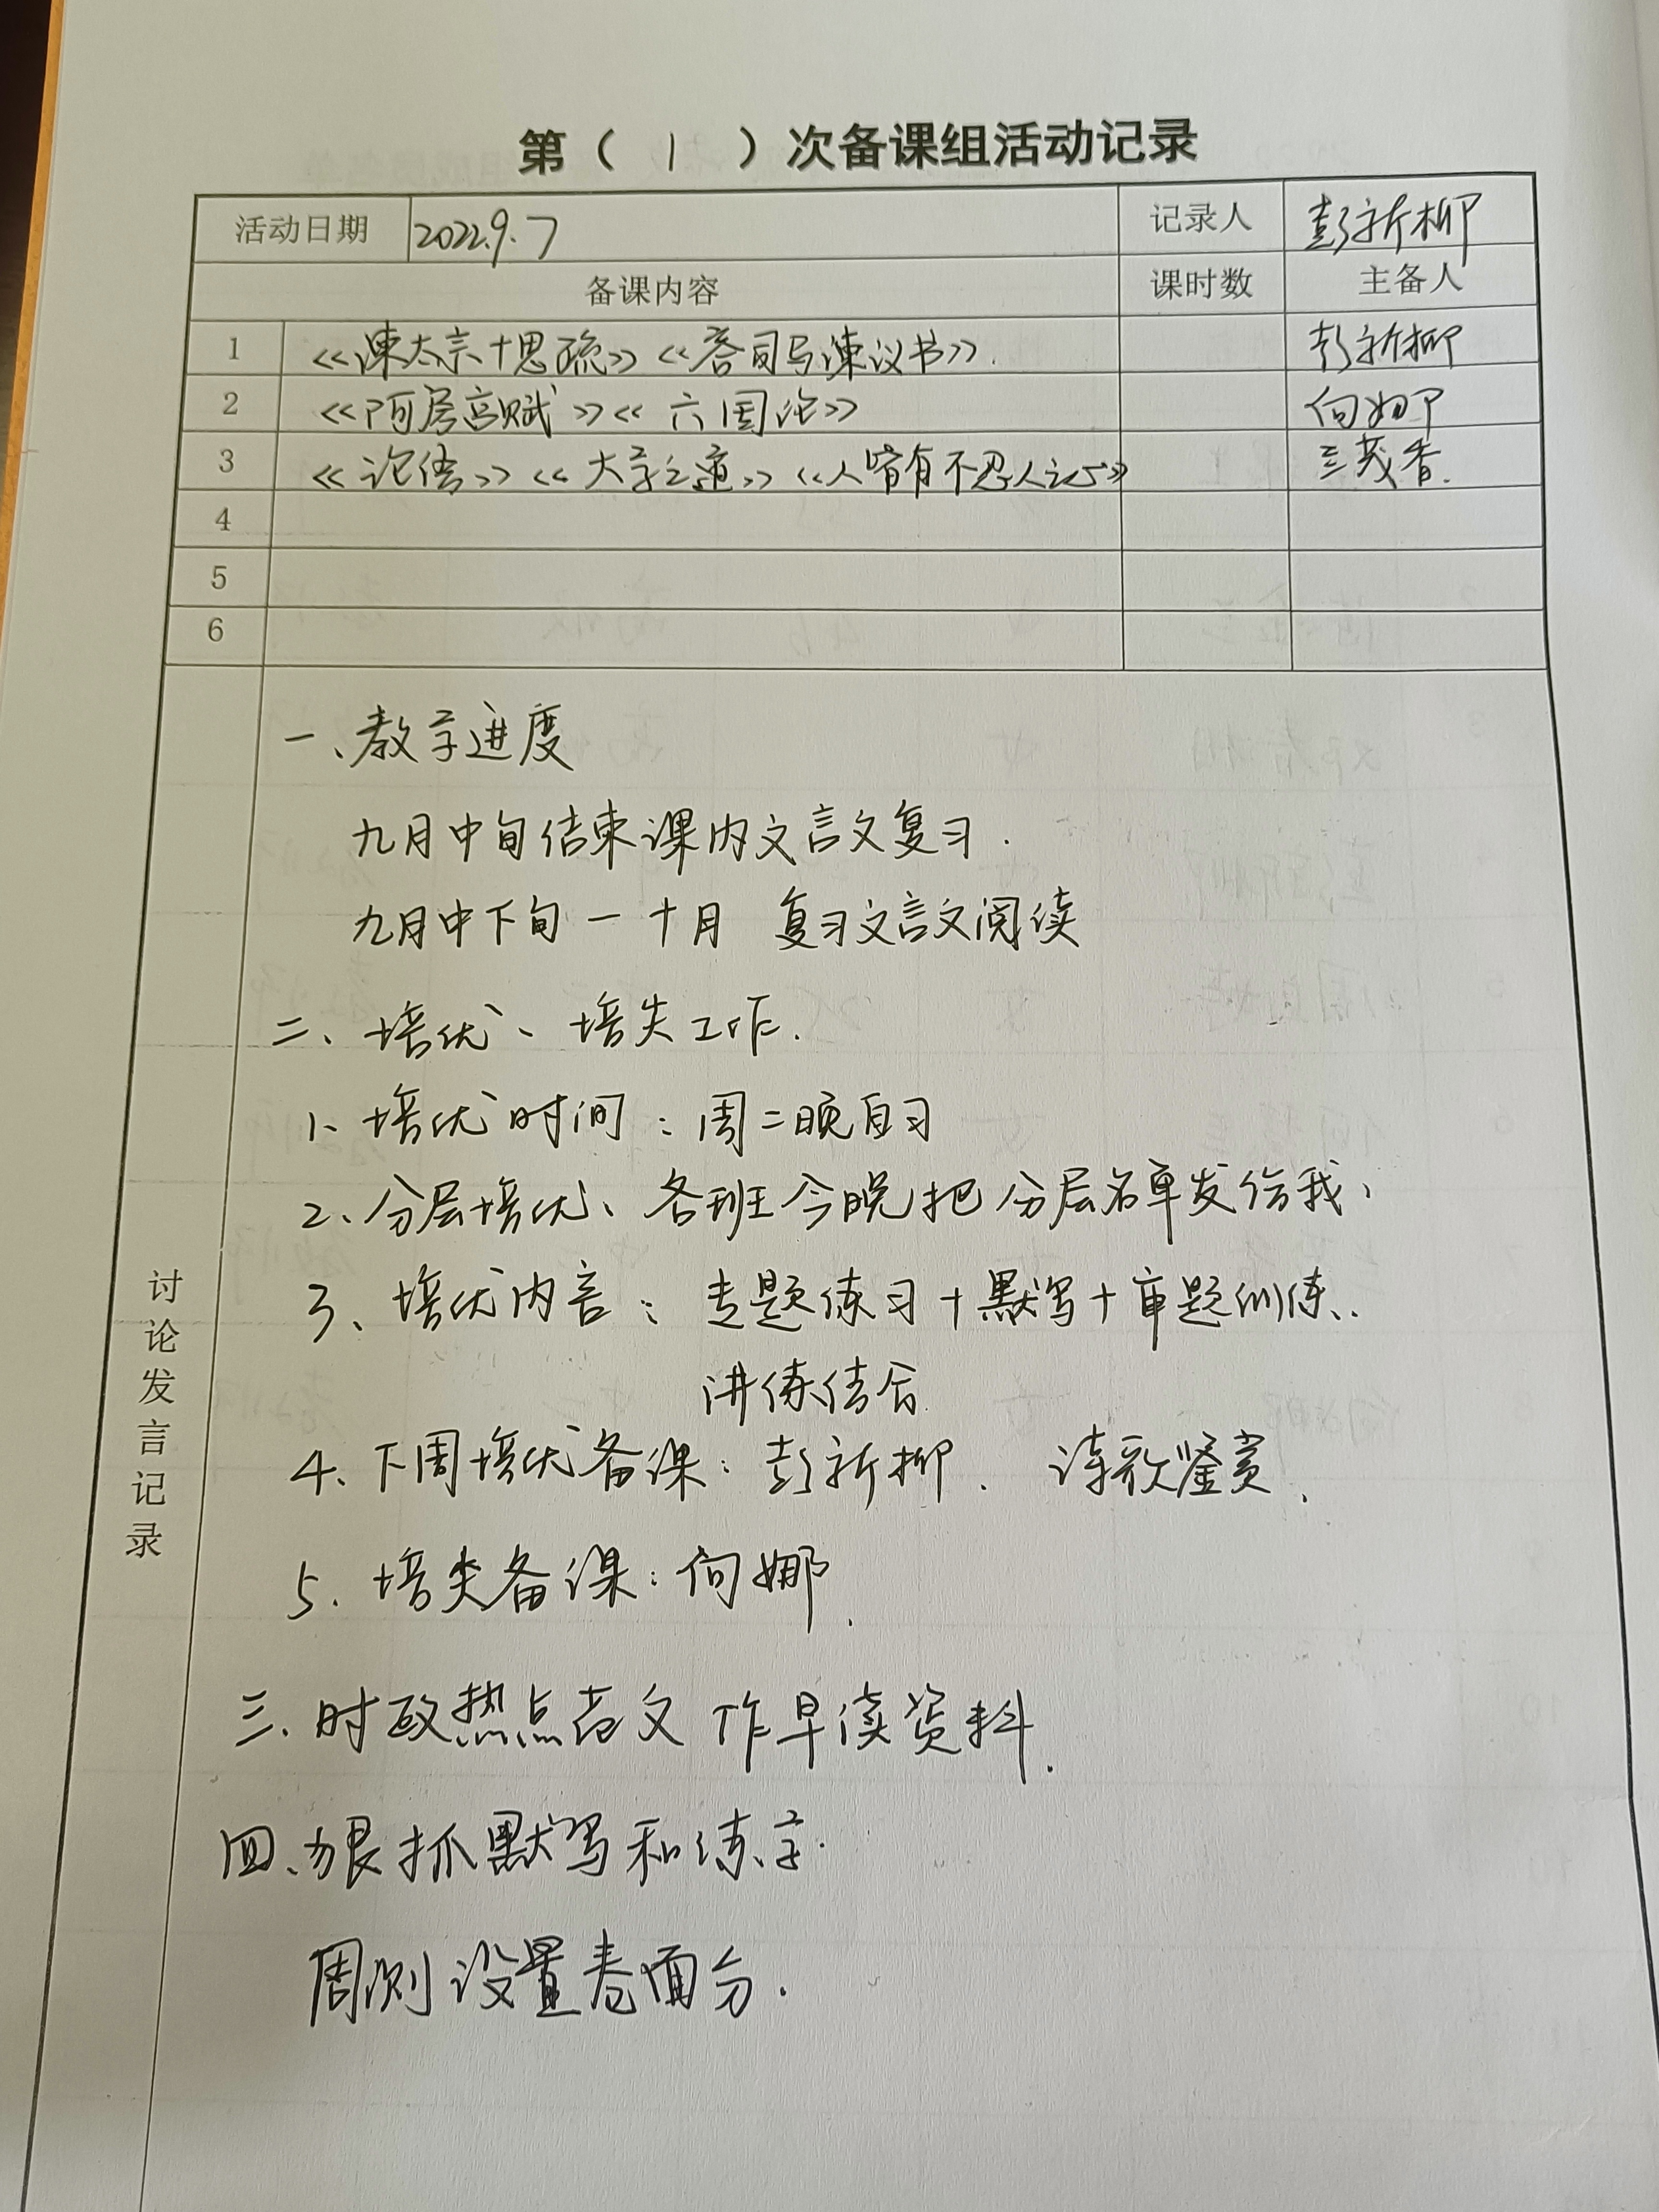 第（ 1 ）次备课组活动记录
活动日期 2022.9.7 记录人 彭新柳
备课内容 课时数 主备人
1 《谏太宗十思疏》《答司马谏议书》. 彭新柳
2 《阿房宫赋》《六国论》 向娜
3 《论语》《大学之道》《人皆有不忍人之心》 茂香.
4
5
6
讨论发言记录
一、教学进度
九月中旬结束课内文言文复习.
九月中下旬一十月 复习文言文阅读
二、培优、培尖工作.
1、培优时间：周二晚自习
2、分层培优、各班今晚把分层名单发给我，
3、培优内容：专题练习+默写+审题训练..
讲练结合
4、下周培优备课：彭新柳. 诗歌鉴赏.
5. 培尖备课：向娜.
三.时政热点范文作早读资料.
四、狠抓默写和练字.
周测设置卷面分.